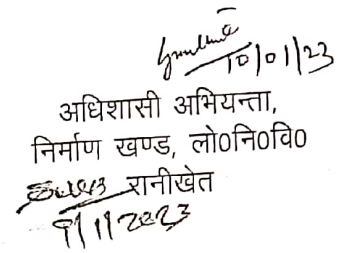 10/01/23
अधिशासी अभियन्ता,
निर्माण खण्ड, लो0नि0वि0
रानीखेत
9/1/2023